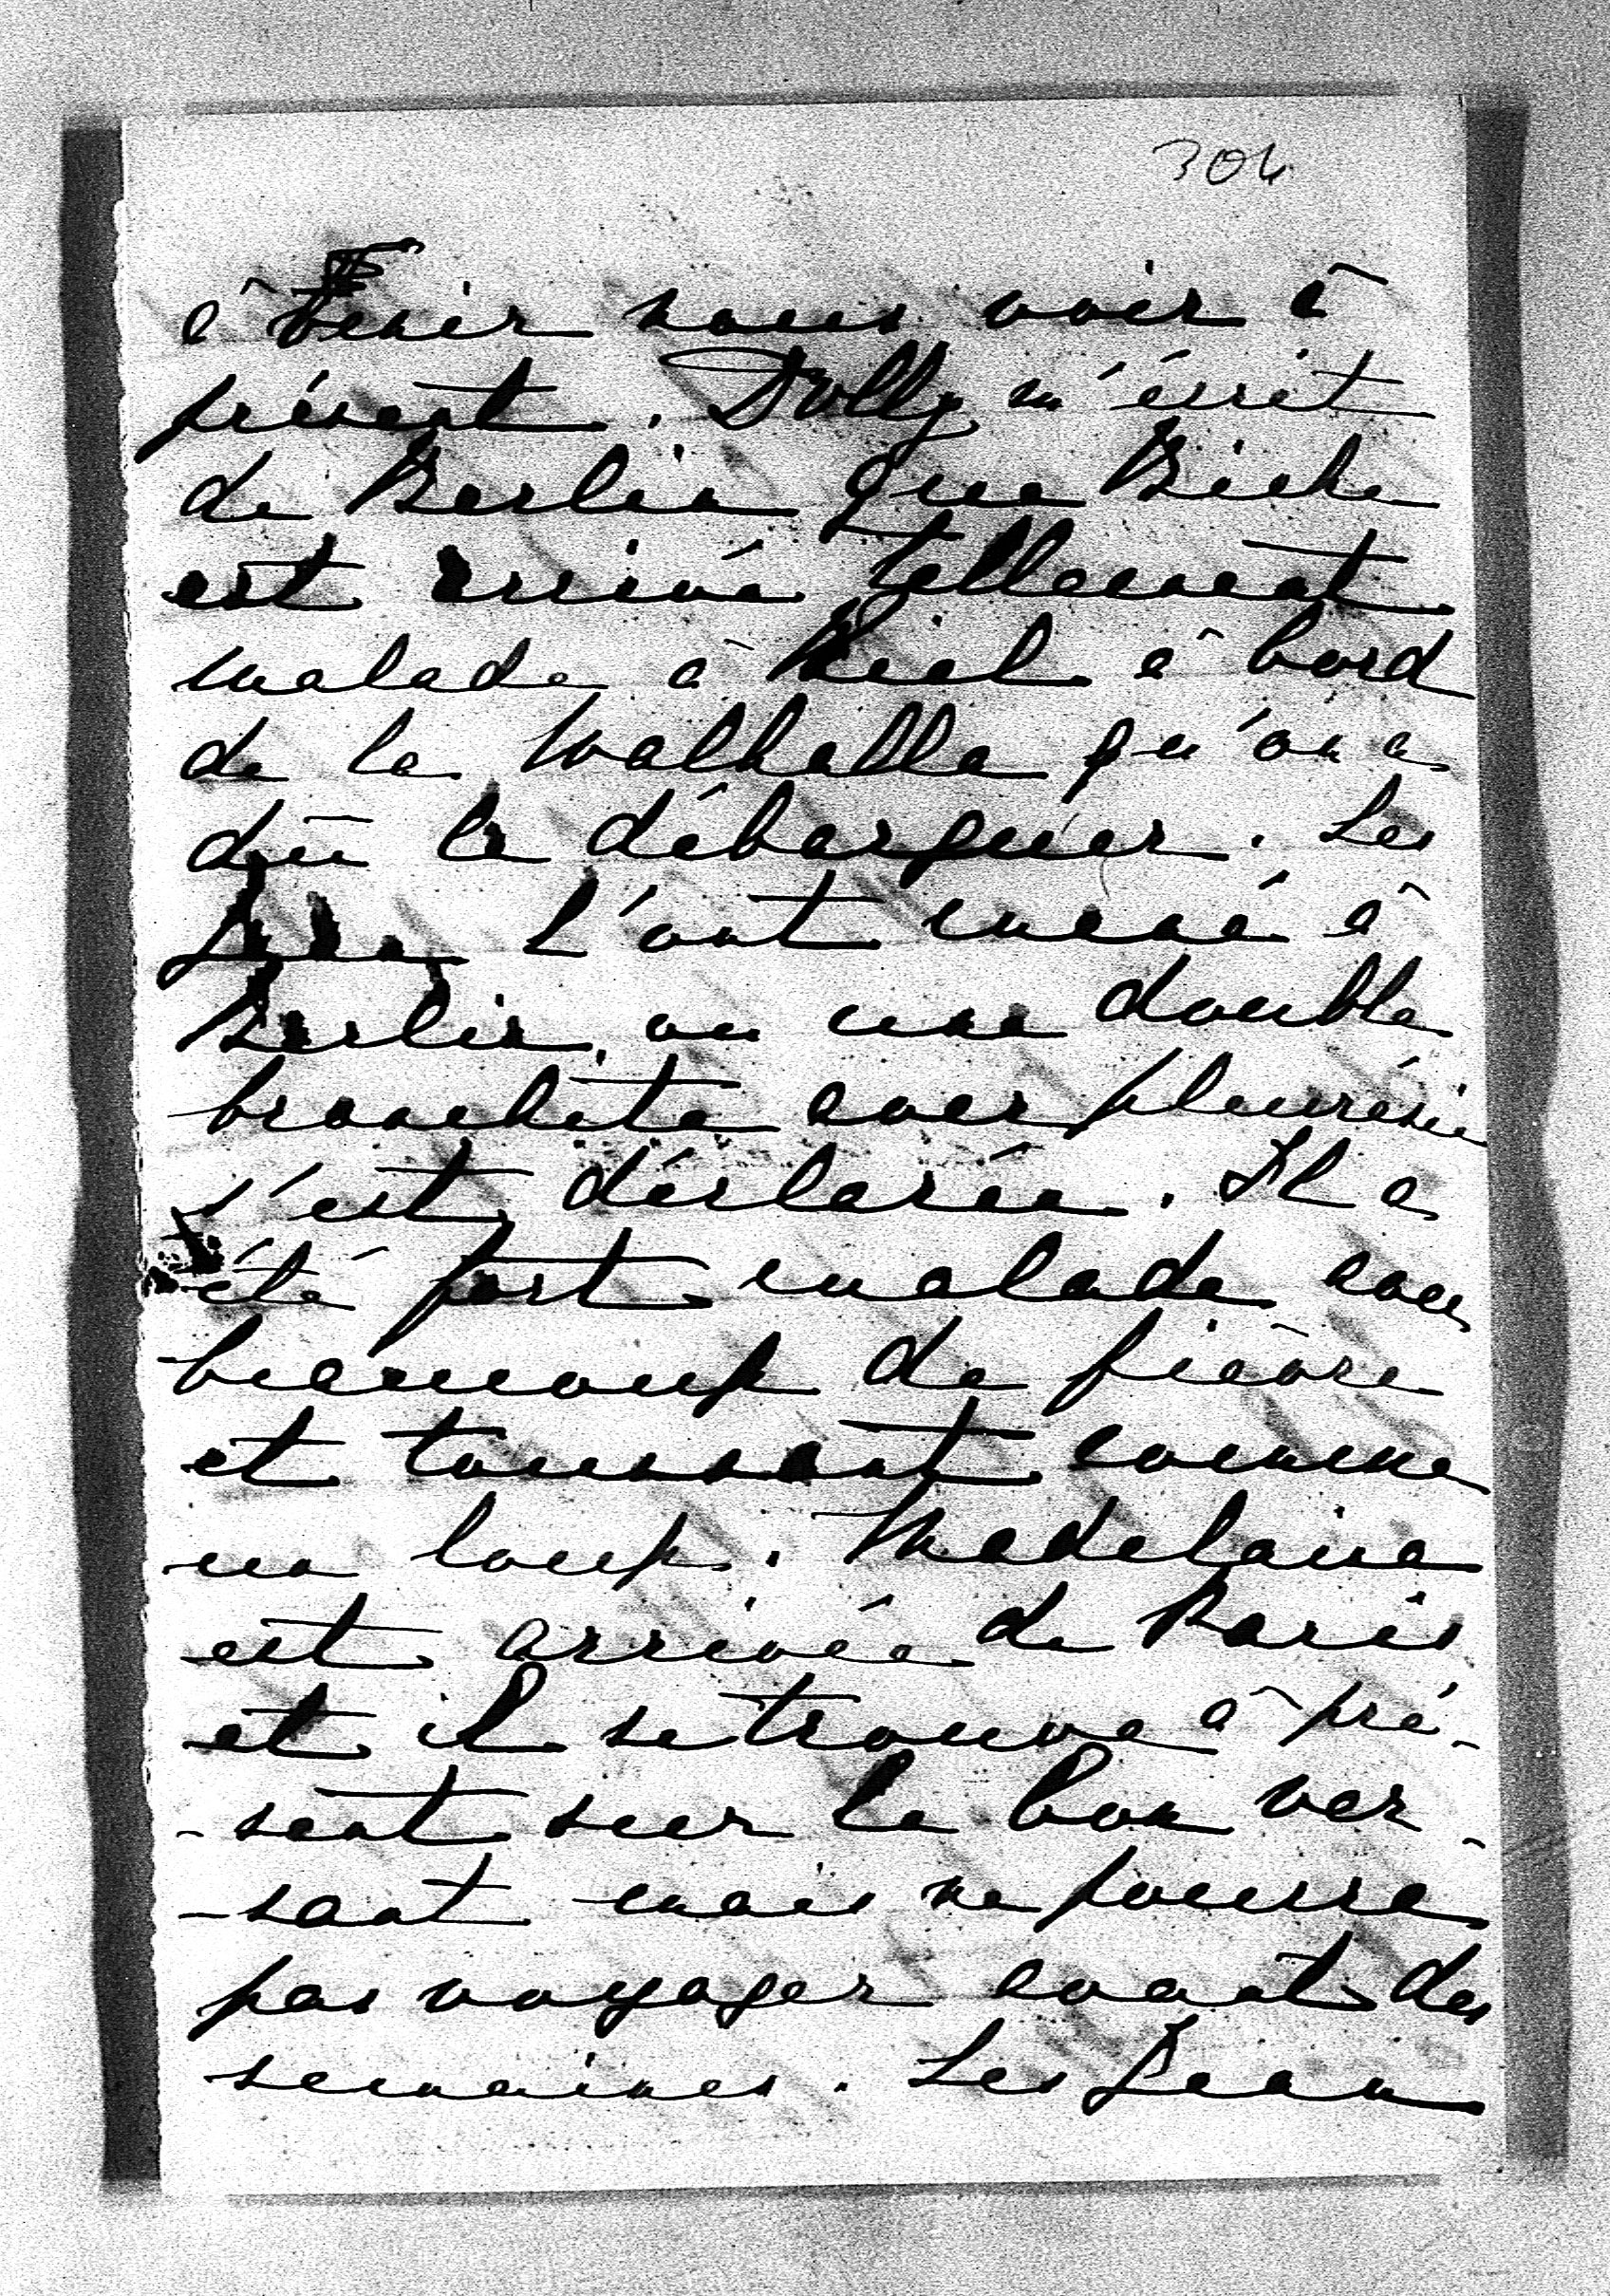 306
à venir nous voir à
présent. Dolly m'écrit
de Berlin que Biche
est arrivé tellement
malade à Kiel à bord
de la Walhalla qu'on a
dû le débarquer. Les
Jean l'ont mené à
Berlin, ou une double
bronchite avec pleurésie
s'est déclarée. Il a
été fort malade avec
beaucoup de fièvre
et toussant comme
un loup. Madelaine
est arrivée de Paris
et il se trouve à pré-
-sent sur le bon ver-
-sant mais ne pourra
pas voyager avant des
semaines. Les Jean